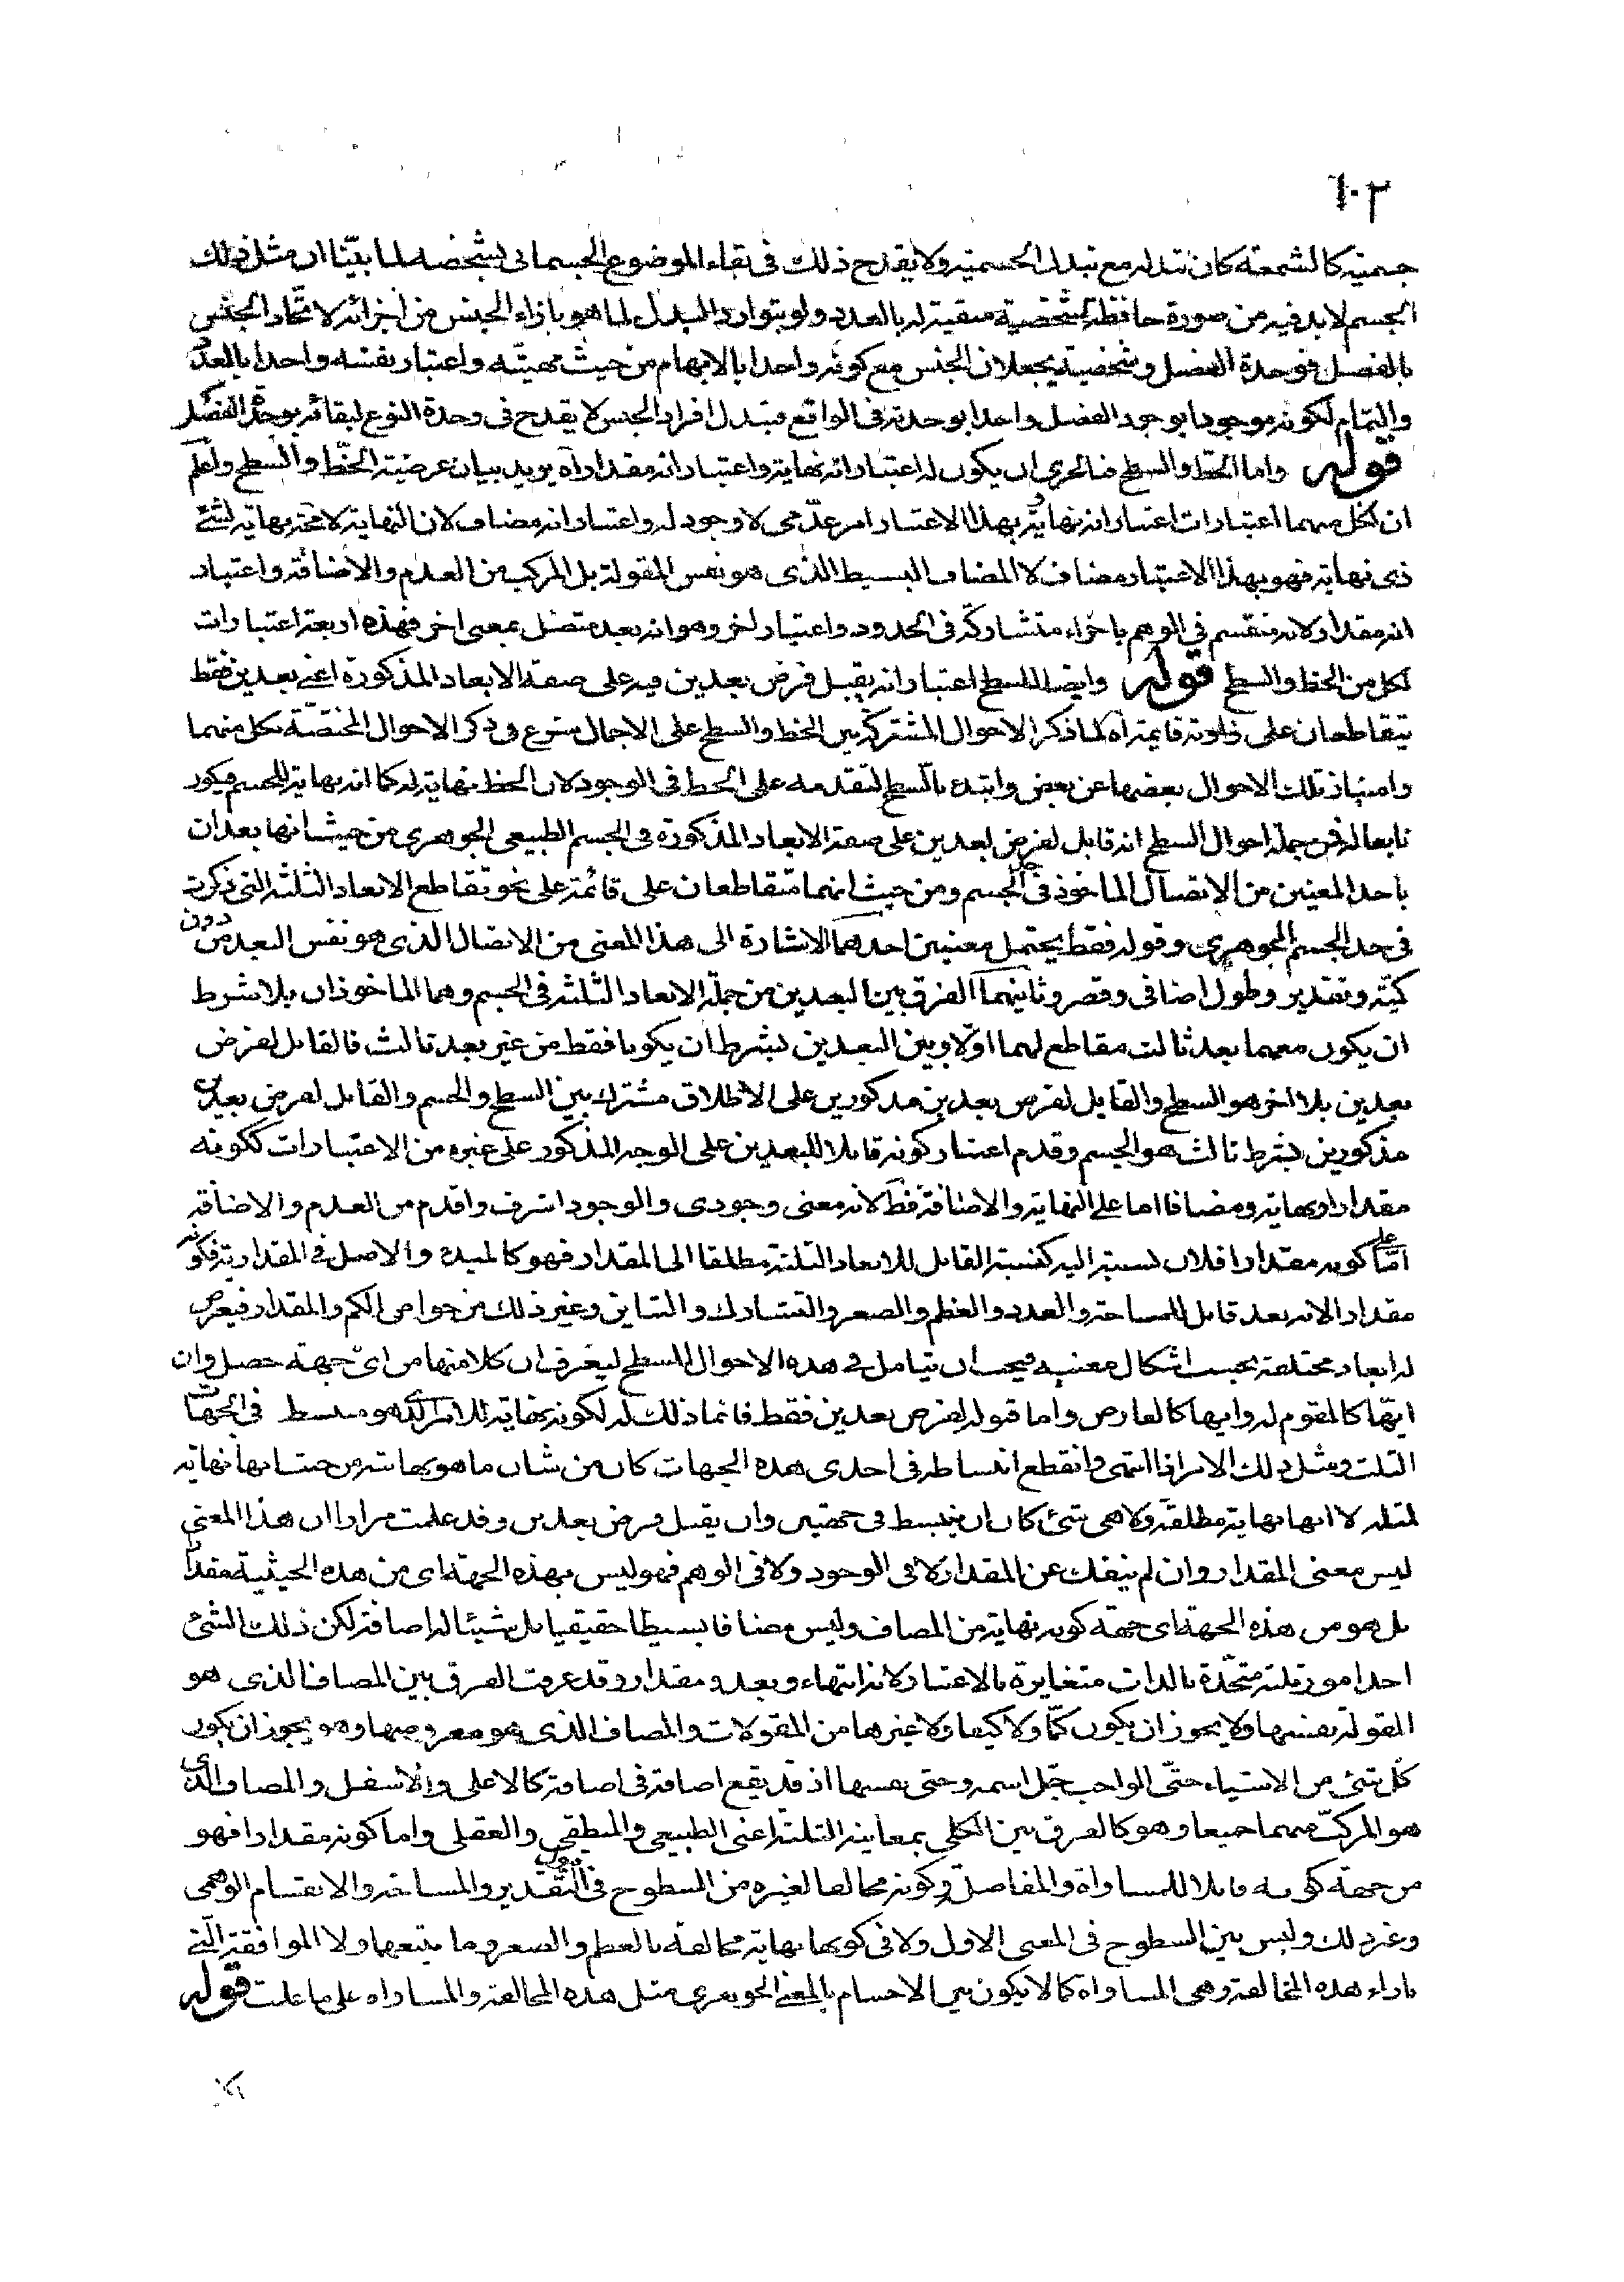 ٦٠٢
جسميته كالشمعة كان تبدله مع تبدل الجسمية ولا يقدح ذلك فى بقاء الموضوع الجسمانى بشخصه لما بيّنا ان مثل ذلك
الجسم لا بد فيه من صورة حافظة لشخصية مبقية له بالعدد ولو بتوارد البدل لما هو بازاء الجنس من اجزائه لاتحاد الجنس
بالفصل فوحدة الفصل وشخصيته يجعلان الجنس مع كونه واحدا بالابهام من حيث مهيته واعتبار نفسه واحدا بالعدد
والتمام لكونه موجودا بوجود الفصل واحدا بوحدته فى الواقع فتبدل افراد الجنس لا يقدح فى وحدة النوع لبقائه بوحدة الفصل
قوله واما الخط والسطح فبالحرى ان يكون له اعتبار انه نهاية واعتبار انه مقدار آه يريد بيان عرضية الخط والسطح واعلم
ان لكل منهما اعتبارات اعتبار انه نهاية وبهذا الاعتبار امر عدمى لا وجود له واعتبار انه مضاف لان النهاية لا محة نهاية لشئ
ذى نهاية فهو بهذا الاعتبار مضاف لا المضاف البسيط الذى هو نفس المقولة بل المركب من العدم والاضافة واعتبار
انه مقدار لانه منقسم فى الوهم باجزاء متشاركة فى الحدود واعتبار اخر وهو انه بعد متصل بمعنى اخر فهذه اربعة اعتبارات
لكل من الخط والسطح قوله وايضا للسطح اعتبار انه يقبل فرض بعدين فيه على صفة الابعاد المذكورة اعنى بعدين فقط
يتقاطعان على زاوية قايمة آه لما ذكر الاحوال المشتركة بين الخط والسطح على الاجمال شرع فى ذكر الاحوال المختصة بكل منهما
وامتياز تلك الاحوال بعضها عن بعض وابتدء بالسطح لتقدمه على الخط فى الوجود لان الخط نهاية له كما انه نهاية للجسم فيكون
تابعا له فمن جملة احوال السطح انه قابل لفرض بعدين على صفة الابعاد المذكورة فى الجسم الطبيعى الجوهرى من حيث انها بعدان
باحد المعنيين من الاتصال الماخوذ فى حد الجسم ومن حيث انهما متقاطعان على قائمة على نحو تقاطع الابعاد الثلثة التى ذكرت
فى حد الجسم الجوهرى وقوله فقط يحتمل معنيين احدهما الاشارة الى هذا المعنى من الاتصال الذى هو نفس البعد من دون
كمية وتقدير وطول اضافى وقصر وثانيهما الفرق بين البعدين من جملة الابعاد الثلثة فى الجسم وهما الماخوذان بلا شرط
ان يكون معهما بعد ثالث مقاطع لهما اولا وبين البعدين بشرط ان يكونا فقط من غير بعد ثالث فالقابل لفرض
بعدين بلا اخر هو السطح والقابل لفرض بعدين مذكورين على الاطلاق مشترك بين السطح والجسم والقابل لفرض بعدين
مذكورين بشرط ثالث هو الجسم وقدم اعتبار كونه قابلا للبعدين على الوجه المذكور على غيره من الاعتبارات ككونه
مقدارا ونهاية ومضافا اما على النهاية والاضافة فظ لانه معنى وجودى والوجود اشرف واقدم من العدم والاضافة
اما على كونه مقدارا فلان نسبته اليه كنسبة القابل للابعاد الثلثة مطلقا الى المقدار فهو كالمبدء والاصل فى المقدارية فكونه
مقدارا لانه بعد قابل للمساحة والعدد والعظم والصغر والتشارك والتباين وغير ذلك من خواص الكم والمقدار فيعرض
له ابعاد مختلفة بحسب اشكال معينة فيجب ان يتامل فى هذه الاحوال للسطح ليعرف ان كلا منها من اى جهة حصل وان
ايها كالمقوم له وايها كالعارض واما قبوله لفرض بعدين فقط فانما ذلك له لكونه نهاية للامر الذى هو منبسط فى الجهات
الثلث ومثل ذلك الامر اذا انتهى وانقطع انبساطه فى احدى هذه الجهات كان من شان ما هو نهايته من حيث انها نهاية
لمثله لا انها نهاية مطلقة ولا هى شئ كان ان ينبسط فى جهتين وان يقبل فرض بعدين وقد علمت مرارا ان هذا المعنى
ليس معنى المقدار وان لم ينفك عن المقدار لا فى الوجود ولا فى الوهم فهو ليس بهذه الجهة اى من هذه الحيثية مقدارا
بل هو من هذه الجهة اى جهة كونه نهاية من المضاف وليس مضافا بسيطا حقيقيا بل شيئا له اضافة لكن ذلك الشئ
احد امور ثلثة متحدة بالذات متغايرة بالاعتبار لانه انتهاء وبعد ومقدار وقد عرفت الفرق بين المضاف الذى هو
المقولة بنفسها ولا يجوز ان يكون كمّا ولا كيفا ولا غيرها من المقولات والمضاف الذى هو معروضها وهو يجوز ان يكون
كل شئ من الاشياء حتى الواجب جل اسمه وحتى نفسها اذ قد يقع اضافة فى اضافة كالاعلى والاسفل والمضاف الذى
هو المركب منهما جميعا وهو كالفرق بين الكلى بمعانيه الثلثة اعنى الطبيعى والمنطقى والعقلى واما كونه مقدارا فهو
من جهة كونه قابلا للمساواة والمفاصلة وكونه مخالفا لغيره من السطوح فى التقدير والمساحة والانقسام الوهمى
وغير ذلك وليس بين السطوح فى المعنى الاول ولا فى كونها نهاية مخالفة بالعظم والصغر وما يتبعها ولا الموافقة التى
بازاء هذه المخالفة وهى المساواة كما لا يكون بين الاجسام بالمعنى الجوهرى مثل هذه المخالفة والمساواه على ما علمت قوله